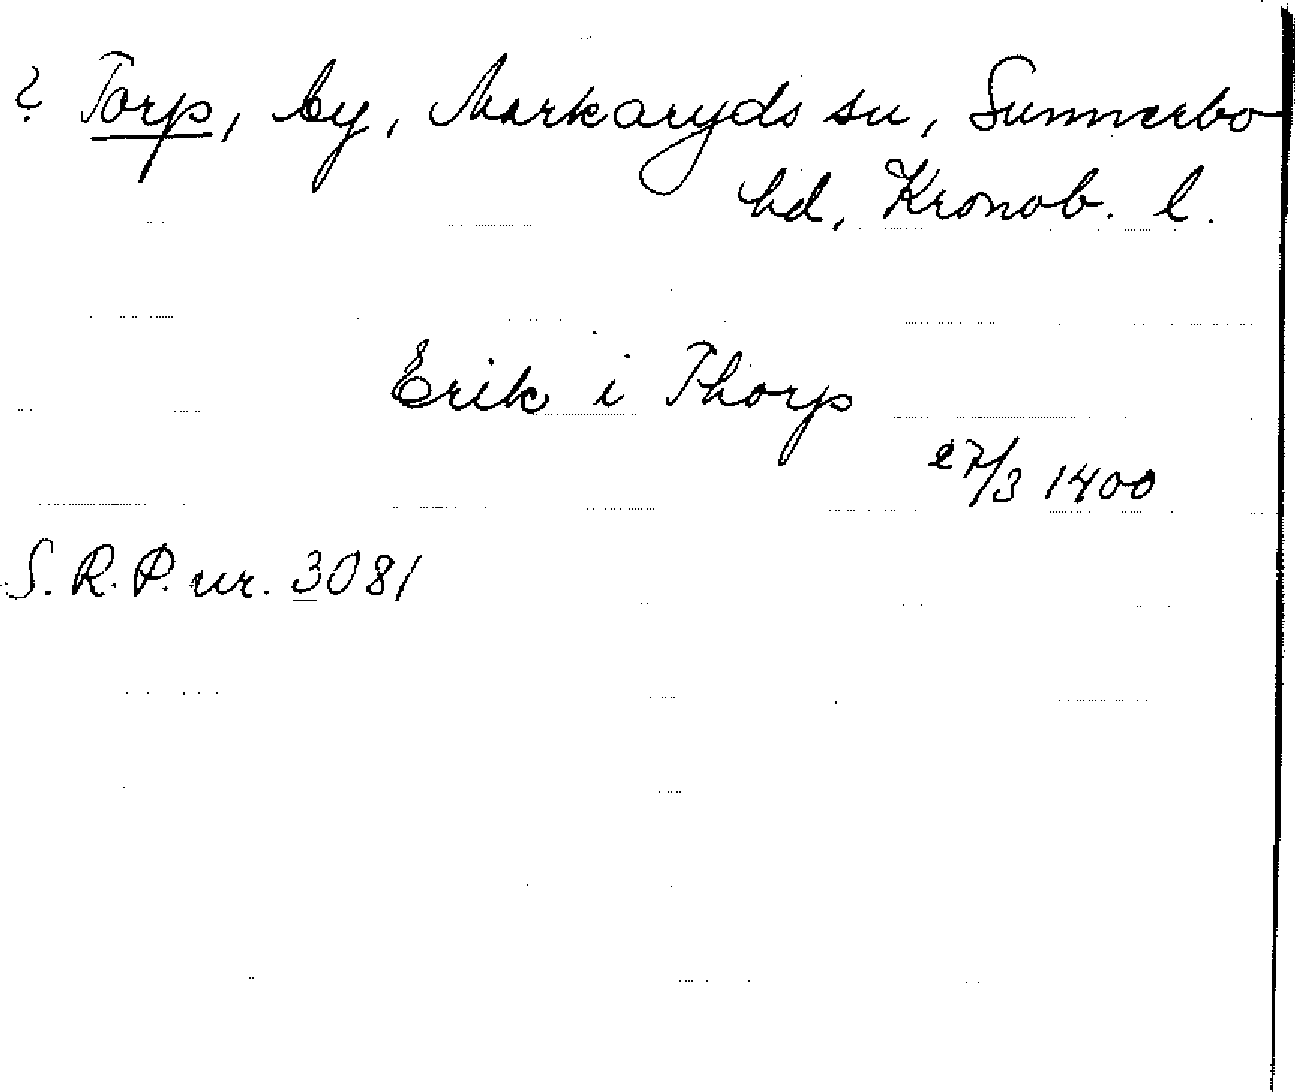 ? Torp, by, Markaryds sn, Sunnerbo
hd, Kronob. l.
Erik i Thorp
27/3 1400
S. R. P. nr. 3081